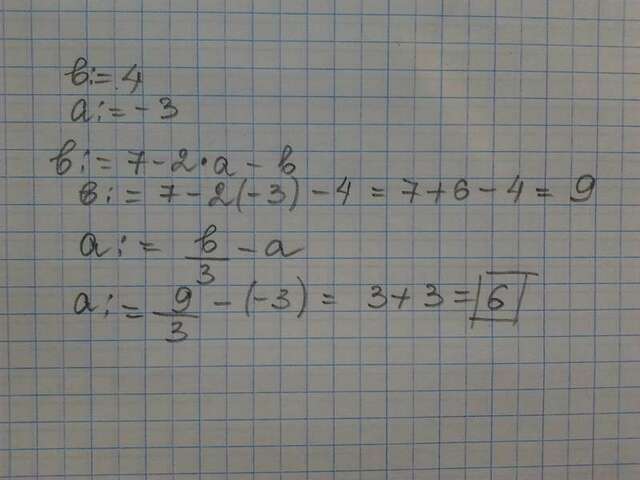 в:= 4
a:= -3
в:= 7 - 2·a - b
в:= 7 - 2(-3) - 4 = 7 + 6 - 4 = 9
a:= в/3 - a
a:= 9/3 - (-3) = 3 + 3 = 6